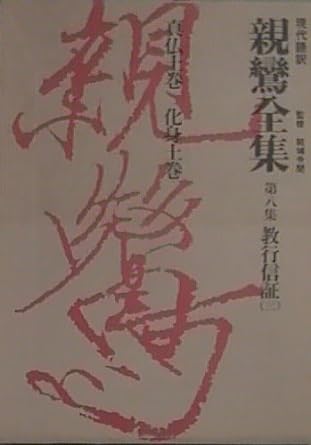 現代語訳
親鸞全集
監修 結城令聞
第八集 教行信証(三)
真仏土巻、化身土巻
親鸞